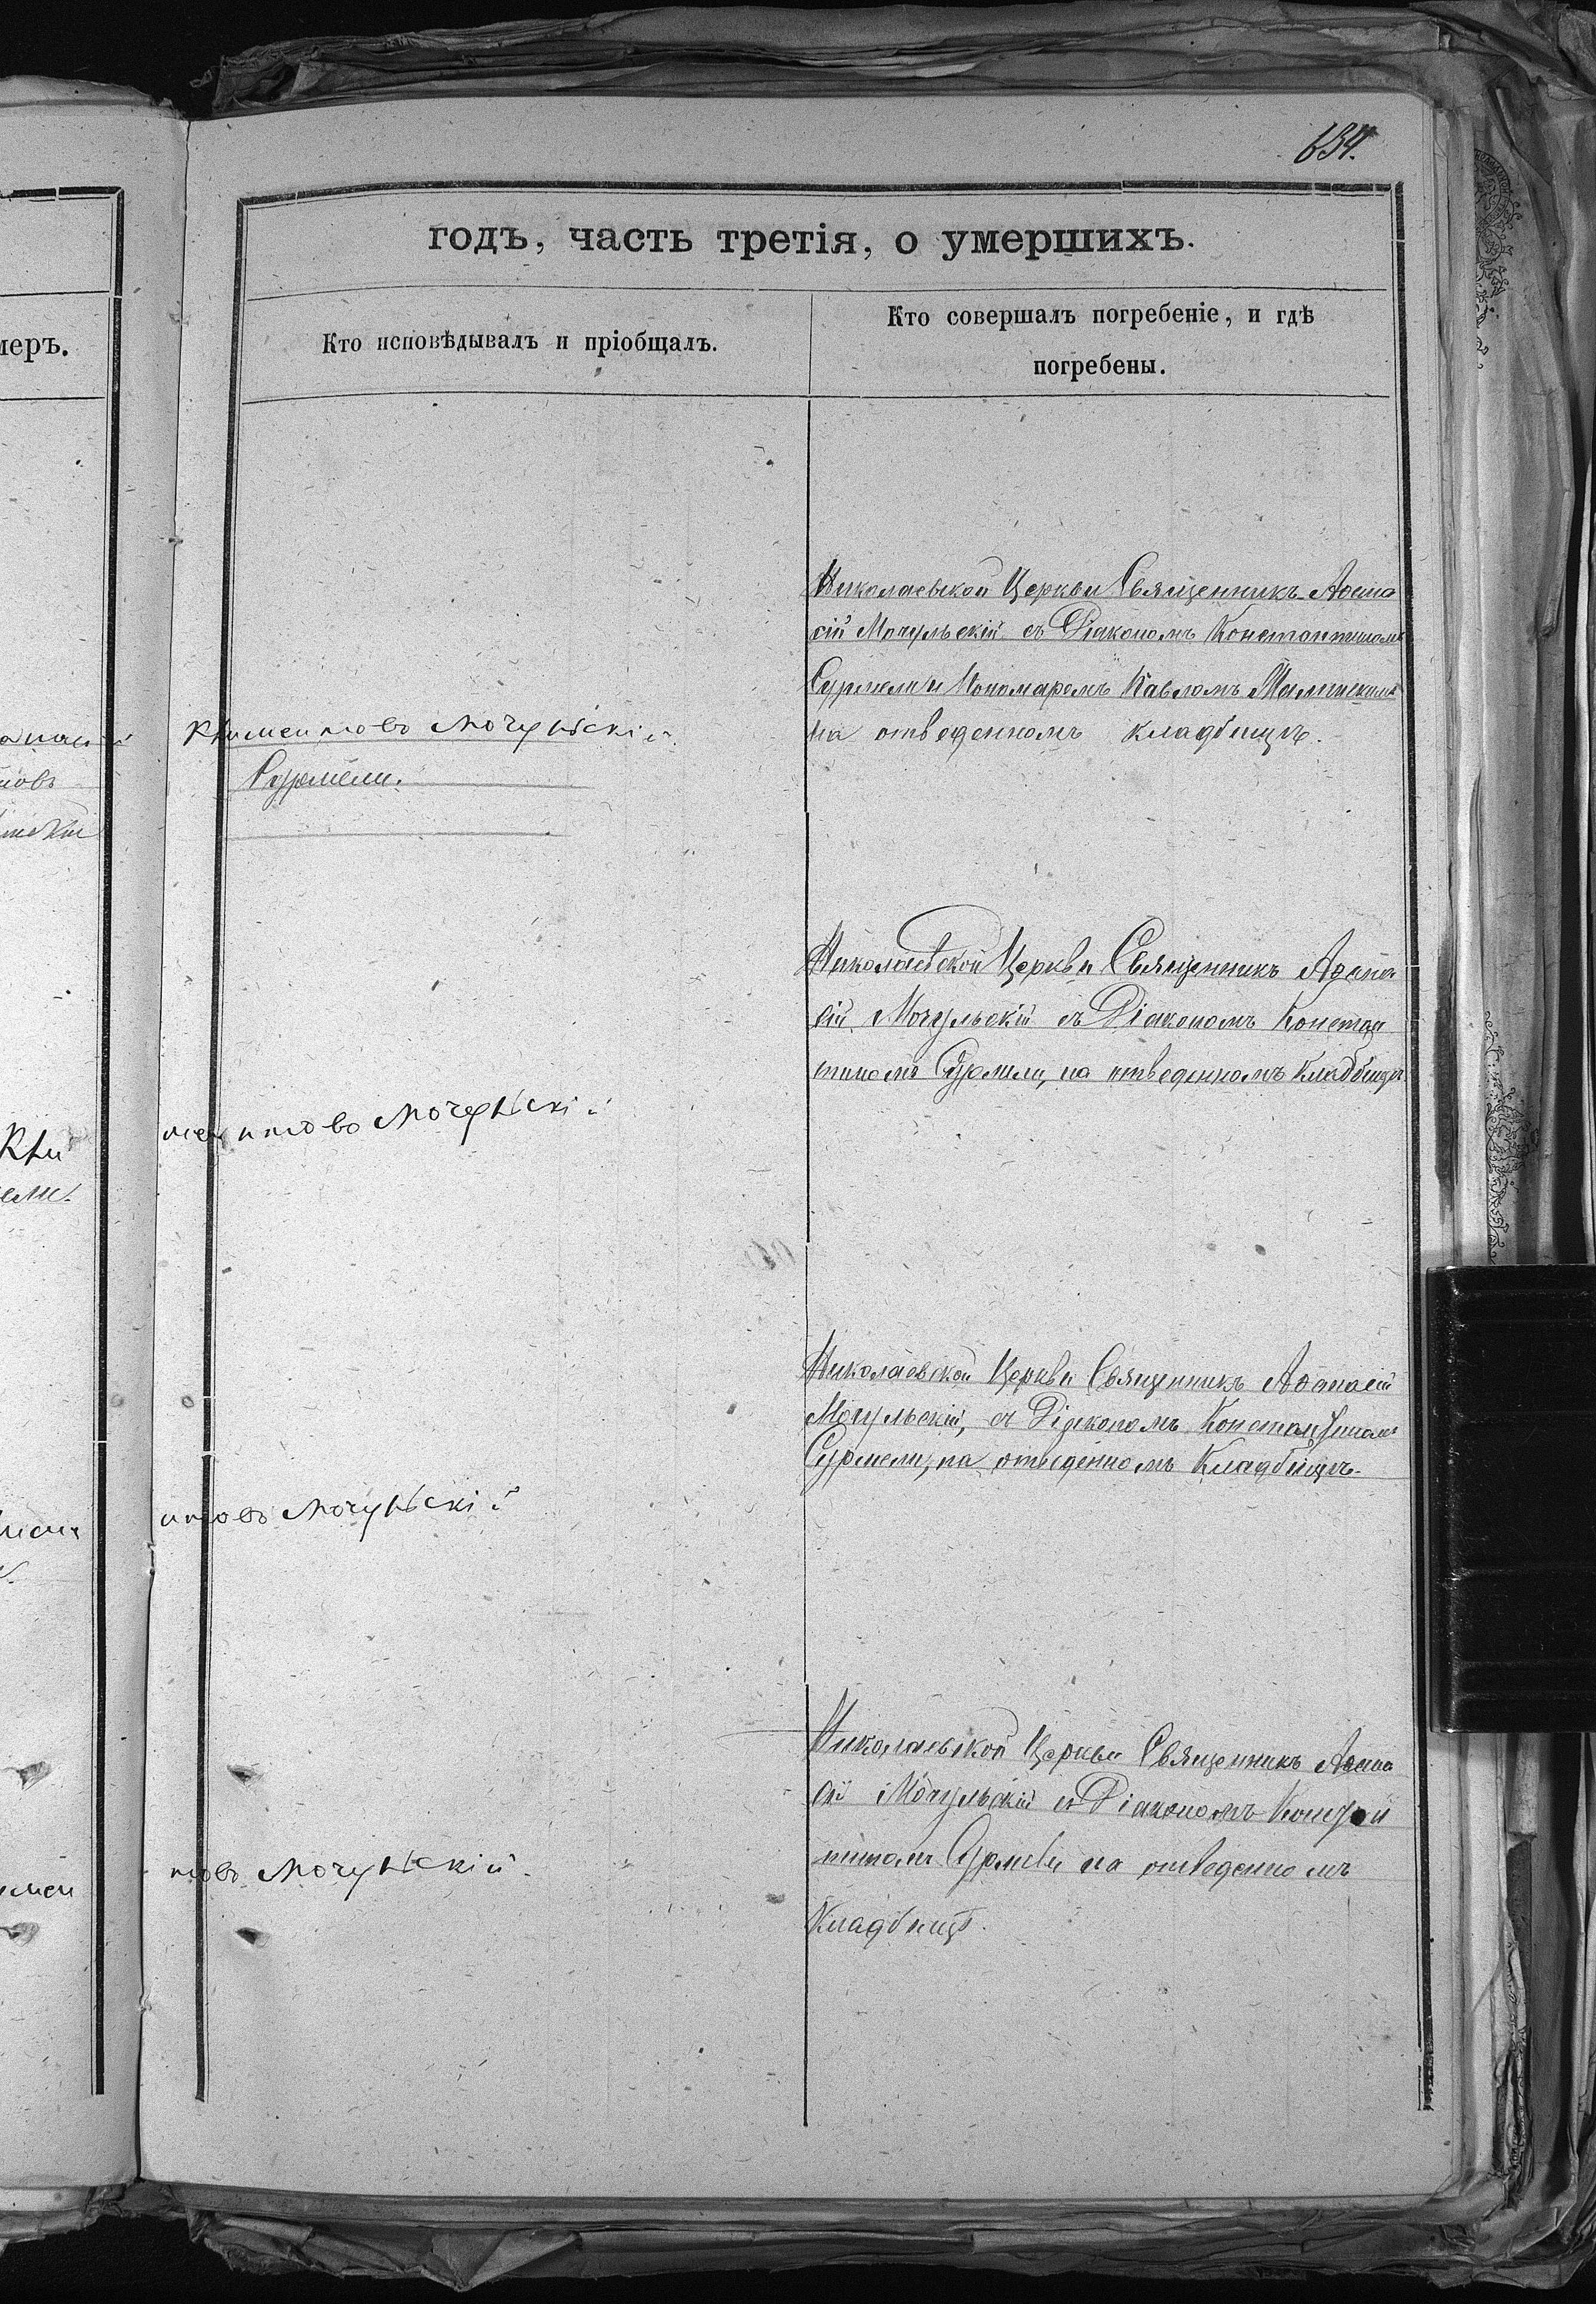 634.
годъ, часть третія, о умершихъ.
меръ.
Кто исповѣдывалъ и пріобщалъ.
Кто совершалъ погребеніе, и гдѣ
погребены.
Николаевской Церкви Священникъ Аѳана
сій Мочульскій съ Діакономъ Константиномъ
Сурмели и Пономаремъ Павломъ
на отведенномъ кладбищѣ.
Климентовъ Мочульскій
Сурмели.
Николаевской Церкви Священникъ Аѳана
сій Мочульскій съ Діакономъ Констан
тиномъ Сурмели, на отведенномъ Кладбищѣ
ментовъ Мочульскій
Николаевской Церкви Священникъ Аѳанасій
Мочульскій, съ Діакономъ Константиномъ
Сурмели, на отведенномъ Кладбищѣ.
нтовъ Мочульскій
Николаевской Церкви Священникъ Аѳана
сій Мочульскій съ Діакономъ Констан
тиномъ Сурмели на отведенномъ
Кладбищѣ.
товъ Мочульскій.